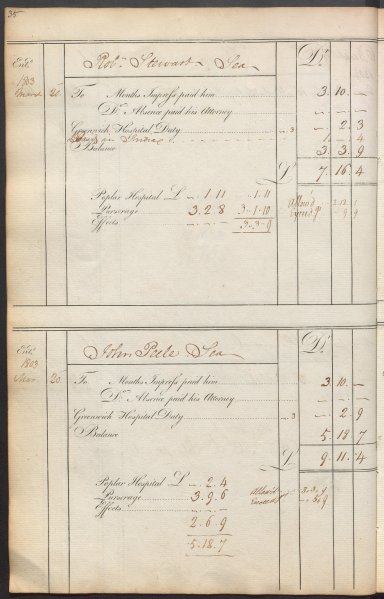 35
Robt. Stewart Sea Dr.
Entd.
1803
20 To Months Imprest paid him 3 . 10 . —
Do. Absence paid his Attorney — . — . —
Greenwich Hospital Duty — 3 — . 2 . 3
Balance 3 . 3 . 9
£ 7 . 16 . 4
Poplar Hospital £ — . 1 . 11 — . 1 . 11
Purserage 3 . 2 . 8 3 . 1 . 10
Effects — . — . — 3 . 3 . 9
John Peele Sea Dr.
Entd.
1803
20 To Months Imprest paid him 3 . 10 . —
Do. Absence paid his Attorney — . — . —
Greenwich Hospital Duty — 3 — . 2 . 9
Balance 5 . 18 . 7
£ 9 . 11 . 4
Poplar Hospital £ — . 2 . 4
Purserage 3 . 9 . 6
Effects — . — . —
2 . 6 . 9
5 . 18 . 7